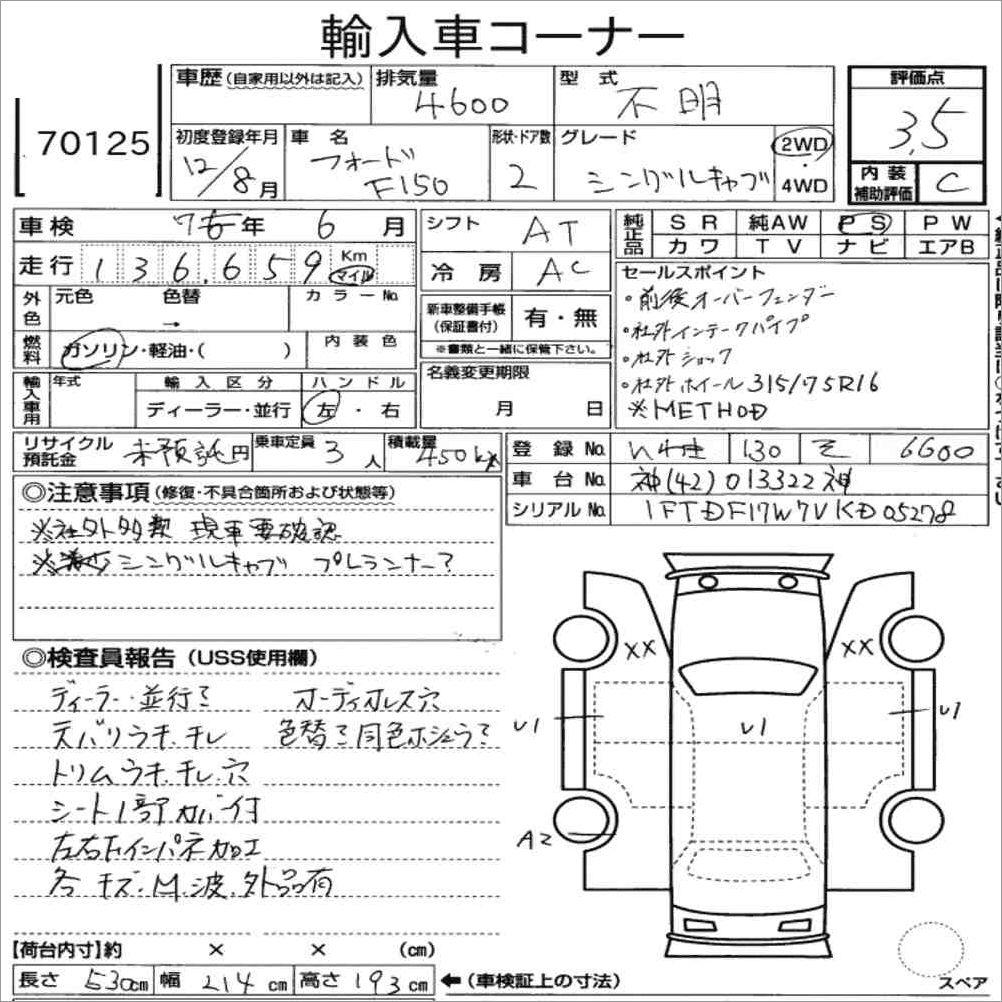 輸入車コーナー
70125
車歴(自家用以外は記入) 排気量 4600 型式 不明
初度登録年月 12/8月 車名 フォード F150 形状・ドア数 2 グレード シングルキャブ 2WD・4WD
評価点 3.5
内装補助評価 C
車検 年 6月
走行 136,659 Km マイル
外色 元色 → 色替 カラーNo.
燃料 ガソリン・軽油・( ) 内装色
輸入車用 年式 輸入区分 ディーラー・並行 ハンドル 左・右
シフト AT
冷房 AC
新車整備手帳(保証書付) 有・無
※書類と一緒に保管下さい。
名義変更期限 月 日
純正品 SR 純AW PS PW
カワ TV ナビ エアB
セールスポイント
・前後オーバーフェンダー
・社外インテークパイプ
・社外ショック
・社外ホイール 315/75R16
※METHOD
リサイクル預託金 未預託円 乗車定員 3人 積載量 450kg
登録No. 130 6600
車台No. 神(42)013322神
シリアルNo. 1FTDF17W7VKD05278
◎注意事項(修復・不具合箇所および状態等)
※社外多数 現車要確認
シングルキャブ プレランナー?
◎検査員報告(USS使用欄)
ディーラー・並行? オーディオレス穴
天バリウキ、キレ 色替?同色ホシュウ?
トリムウキ、キレ、穴
シート1部カバー付
左右下インパネ加工
各キズ、M、波、外品有
XX XX
U1 U1 U1
A2
【荷台内寸】約 × × (cm)
長さ 530cm 幅 214cm 高さ 193cm ←(車検証上の寸法)
スペア